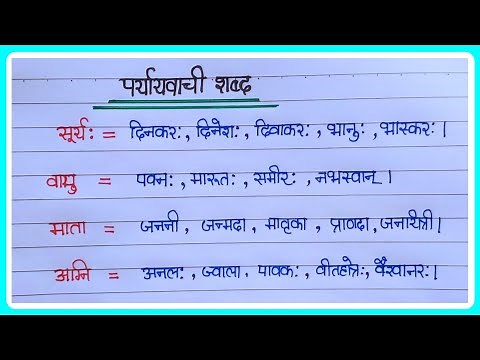 पर्यायवाची शब्द
सूर्यः = दिनकरः, दिनेशः, दिवाकरः, भानुः, भास्करः।
वायु = पवनः, मारूतः, समीरः, नभस्वान्।
माता = जननी, जन्मदा, मातृका, प्राणदा, जनयित्री।
अग्नि = अनलः, ज्वाला, पावकः, वीतहोत्रः, वैश्वानरः।